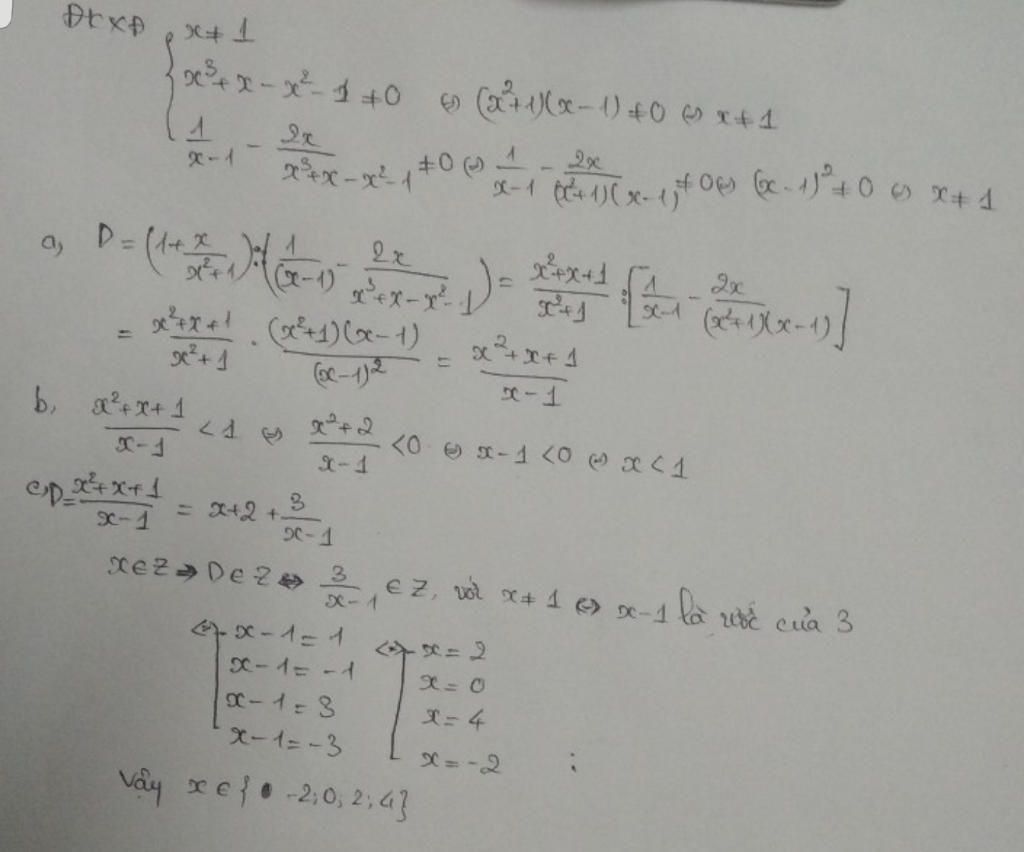 ĐKXĐ { x ≠ 1
x³ + x - x² - 1 ≠ 0 ⇔ (x² + 1)(x - 1) ≠ 0 ⇔ x ≠ 1
1/(x-1) - 2x/(x³ + x - x² - 1) ≠ 0 ⇔ 1/(x-1) - 2x/((x²+1)(x-1)) ≠ 0 ⇔ (x-1)² ≠ 0 ⇔ x ≠ 1
a, D = (1 + x/(x²+1)) : (1/(x-1) - 2x/(x³+x-x²-1)) = (x²+x+1)/(x²+1) : [1/(x-1) - 2x/((x²+1)(x-1))]
= (x²+x+1)/(x²+1) . ((x²+1)(x-1))/(x-1)² = (x²+x+1)/(x-1)
b, (x²+x+1)/(x-1) < 1 ⇔ (x²+2)/(x-1) < 0 ⇔ x-1 < 0 ⇔ x < 1
c, D = (x²+x+1)/(x-1) = x+2 + 3/(x-1)
x ∈ Z ⇒ D ∈ Z ⇔ 3/(x-1) ∈ Z, với x ≠ 1 ⇔ x-1 là ước của 3
⇔ [ x-1 = 1 ⇔ [ x = 2
x-1 = -1 x = 0
x-1 = 3 x = 4
x-1 = -3 x = -2 ;
Vậy x ∈ { -2; 0; 2; 4}